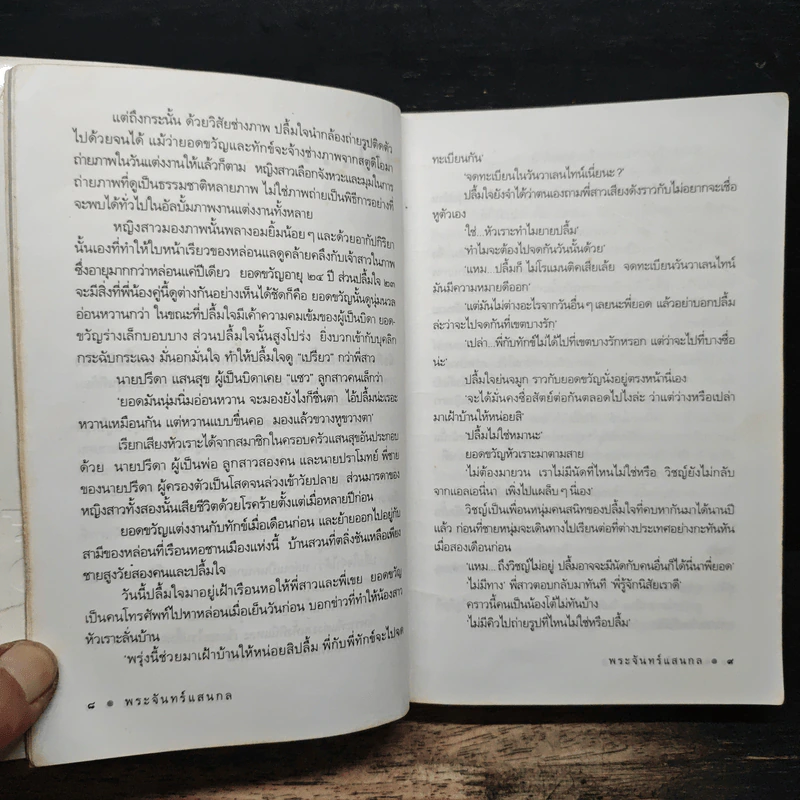 แต่ถึงกระนั้น ด้วยวิสัยช่างภาพ ปลื้มใจนำกล้องถ่ายรูปติดตัว
ไปด้วยจนได้ แม้ว่ายอดขวัญและทักข์จะจ้างช่างภาพจากสตูดิโอมา
ถ่ายภาพในวันแต่งงานให้แล้วก็ตาม หญิงสาวเลือกจังหวะและมุมในการ
ถ่ายภาพที่ดูเป็นธรรมชาติหลายภาพ ไม่ใช่ภาพถ่ายเป็นพิธีการอย่างที่
จะพบได้ทั่วไปในอัลบั้มภาพงานแต่งงานทั้งหลาย
หญิงสาวมองภาพนั้นพลางอมยิ้มน้อยๆ และด้วยอากัปกิริยา
นั้นเองที่ทำให้ใบหน้าเรียวของหล่อนแลดูคล้ายคลึงกับเจ้าสาวในภาพ
ซึ่งอายุมากกว่าหล่อนแค่ปีเดียว ยอดขวัญอายุ ๒๔ ปี ส่วนปลื้มใจ ๒๓
จะมีสิ่งที่พี่น้องคู่นี้ดูต่างกันอย่างเห็นได้ชัดก็คือ ยอดขวัญนั้นดูนุ่มนวล
อ่อนหวานกว่า ในขณะที่ปลื้มใจมีเค้าความคมเข้มของผู้เป็นบิดา ยอด-
ขวัญร่างเล็กบอบบาง ส่วนปลื้มใจนั้นสูงโปร่ง ยิ่งบวกเข้ากับบุคลิก
กระฉับกระเฉง มั่นอกมั่นใจ ทำให้ปลื้มใจดู "เปรี้ยว" กว่าพี่สาว
นายปรีดา แสนสุข ผู้เป็นบิดาเคย "แซว" ลูกสาวคนเล็กว่า
'ยอดมันนุ่มนิ่มอ่อนหวาน จะมองยังไงก็ชื่นตา ไอ้ปลื้มน่ะเรอะ
หวานเหมือนกัน แต่หวานแบบขื่นคอ มองแล้วขวางหูขวางตา'
เรียกเสียงหัวเราะได้จากสมาชิกในครอบครัวแสนสุขอันประกอบ
ด้วย นายปรีดา ผู้เป็นพ่อ ลูกสาวสองคน และนายปราโมทย์ พี่ชาย
ของนายปรีดา ผู้ครองตัวเป็นโสดจนล่วงเข้าวัยปลาย ส่วนมารดาของ
หญิงสาวทั้งสองนั้นเสียชีวิตด้วยโรคร้ายตั้งแต่เมื่อหลายปีก่อน
ยอดขวัญแต่งงานกับทักข์เมื่อเดือนก่อน และย้ายออกไปอยู่กับ
สามีของหล่อนที่เรือนหอชานเมืองแห่งนี้ บ้านสวนที่ตลิ่งชันเหลือเพียง
ชายสูงวัยสองคนและปลื้มใจ
วันนี้ปลื้มใจมาอยู่เฝ้าเรือนหอให้พี่สาวและพี่เขย ยอดขวัญ
เป็นคนโทรศัพท์ไปหาหล่อนเมื่อเย็นวันก่อน บอกข่าวที่ทำให้น้องสาว
หัวเราะลั่นบ้าน
'พรุ่งนี้ช่วยมาเฝ้าบ้านให้หน่อยสิปลื้ม พี่กับพี่ทักข์จะไปจด
๘ ๏ พระจันทร์แสนกล
ทะเบียนกัน'
'จดทะเบียนในวันวาเลนไทน์เนี่ยนะ?'
ปลื้มใจยังจำได้ว่าตนเองถามพี่สาวเสียงดังราวกับไม่อยากจะเชื่อ
หูตัวเอง
'ใช่...หัวเราะทำไมยายปลื้ม'
'ทำไมจะต้องไปจดกันวันนั้นด้วย'
'แหม...ปลื้มก็ ไม่โรแมนติคเสียเล้ย จดทะเบียนวันวาเลนไทน์
มันมีความหมายดีออก'
'แต่มันไม่ต่างอะไรจากวันอื่นๆ เลยนะพี่ยอด แล้วอย่าบอกปลื้ม
ล่ะว่าจะไปจดกันที่เขตบางรัก'
'เปล่า...พี่กับทักข์ไม่ได้ไปที่เขตบางรักหรอก แต่ว่าจะไปที่บางซื่อ
น่ะ'
ปลื้มใจย่นจมูก ราวกับยอดขวัญนั่งอยู่ตรงหน้านี่เอง
'จะได้มั่นคงซื่อสัตย์ต่อกันตลอดไปไงล่ะ ว่าแต่ว่างหรือเปล่า
มาเฝ้าบ้านให้หน่อยสิ'
'ปลื้มไม่ใช่หมานะ'
ยอดขวัญหัวเราะมาตามสาย
'ไม่ต้องมายวน เราไม่มีนัดที่ไหนไม่ใช่หรือ วิชญ์ยังไม่กลับ
จากแอลเอนี่นา เพิ่งไปแผล็บๆ นี่เอง'
วิชญ์เป็นเพื่อนหนุ่มคนสนิทของปลื้มใจที่คบหากันมาได้นานปี
แล้ว ก่อนที่ชายหนุ่มจะเดินทางไปเรียนต่อที่ต่างประเทศอย่างกะทันหัน
เมื่อสองเดือนก่อน
'แหม...ถึงวิชญ์ไม่อยู่ ปลื้มอาจจะมีนัดกับคนอื่นก็ได้นี่นาพี่ยอด'
'ไม่มีทาง' พี่สาวตอบกลับมาทันที 'พี่รู้จักนิสัยเราดี'
คราวนี้คนเป็นน้องโต้ไม่ทันบ้าง
'ไม่มีคิวไปถ่ายรูปที่ไหนไม่ใช่หรือปลื้ม'
พระจันทร์แสนกล ๏ ๙